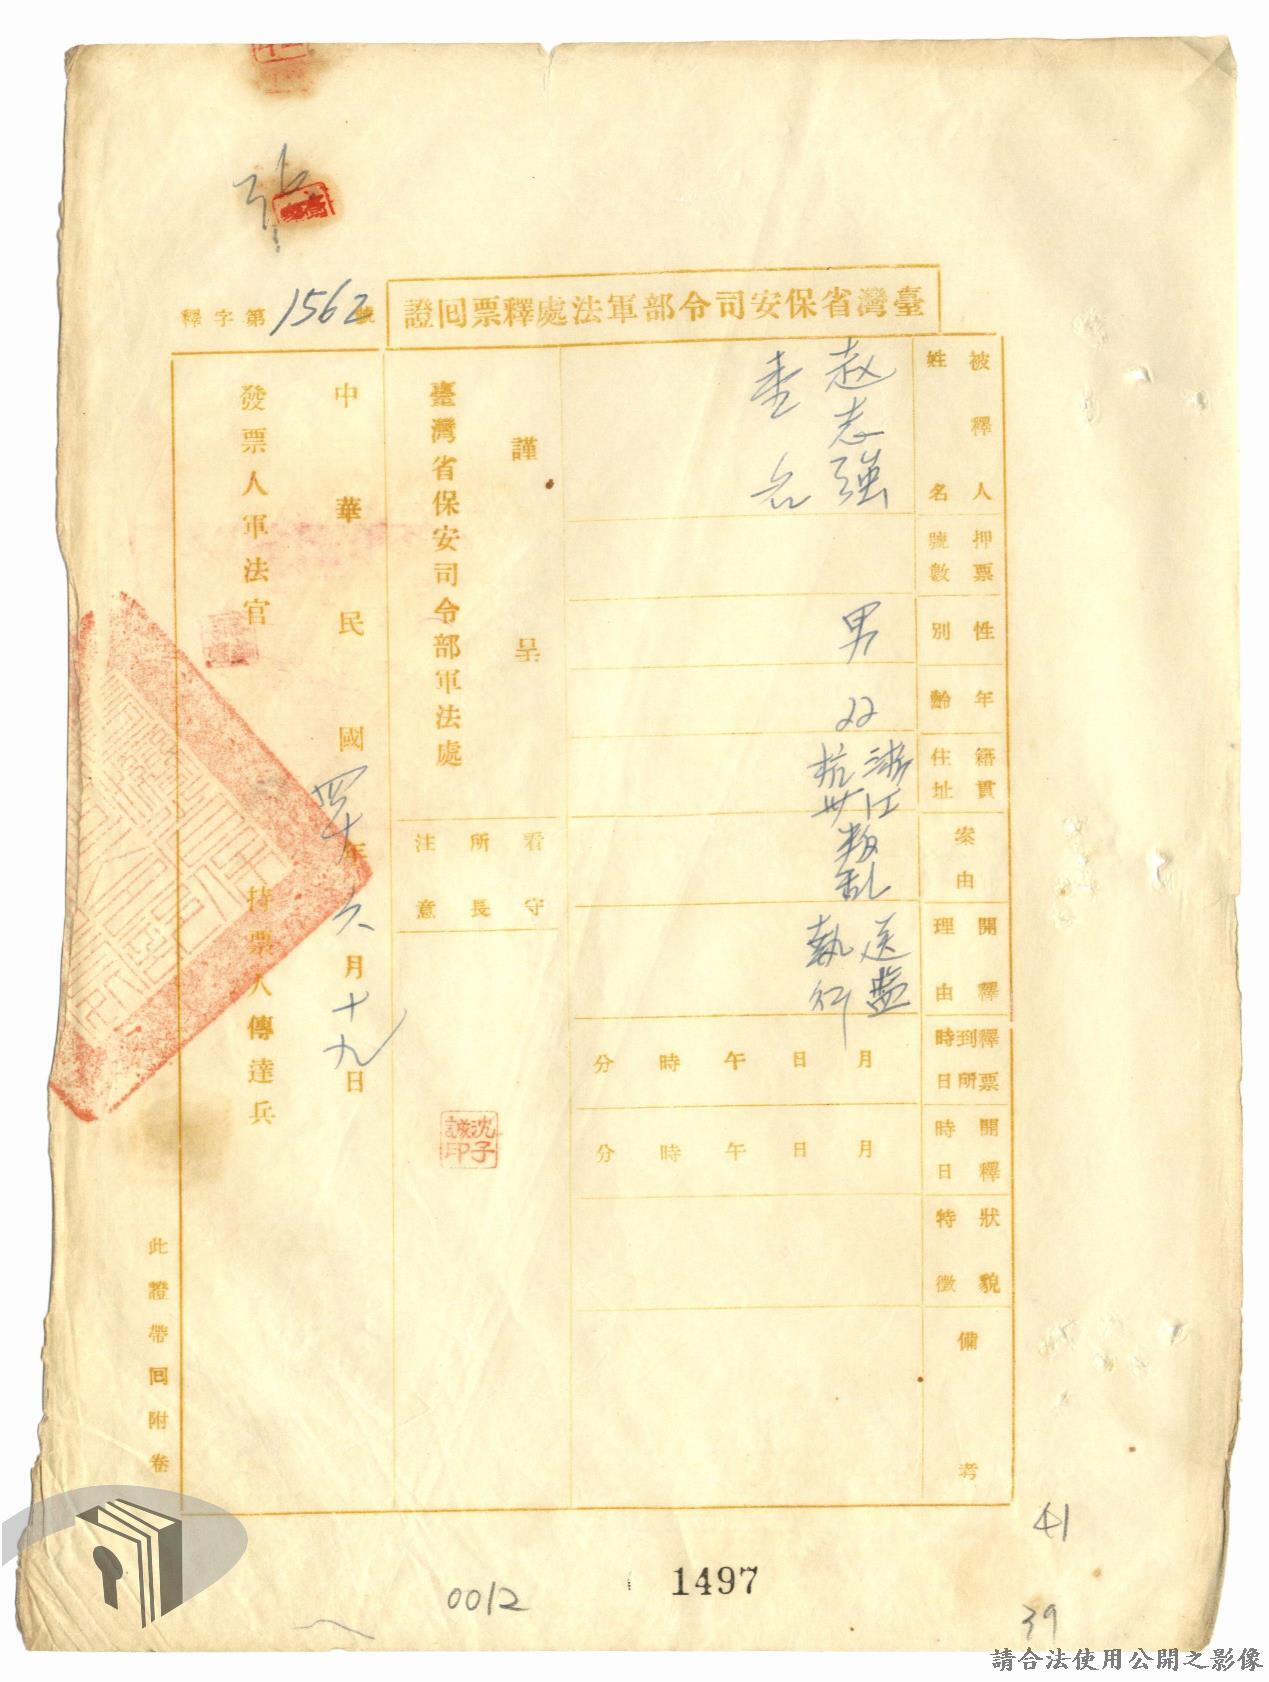 張
臺灣省保安司令部軍法處釋票回證
釋字第1562號
被釋人姓名
趙志強
壹名
押票號數
性別
男
年齡
22
籍貫住址
浙江
杭州
案由
叛乱
開釋理由
送監
執行
釋票到所時日
月 日 午 時 分
開釋時日
月 日 午 時 分
狀貌特徵
備考
謹呈
臺灣省保安司令部軍法處
看守所所長注意
沈子誠印
中華民國四十年六月十九日
發票人軍法官
持票人傳達兵
此證帶回附卷
41
1497
0012
39
請合法使用公開之影像